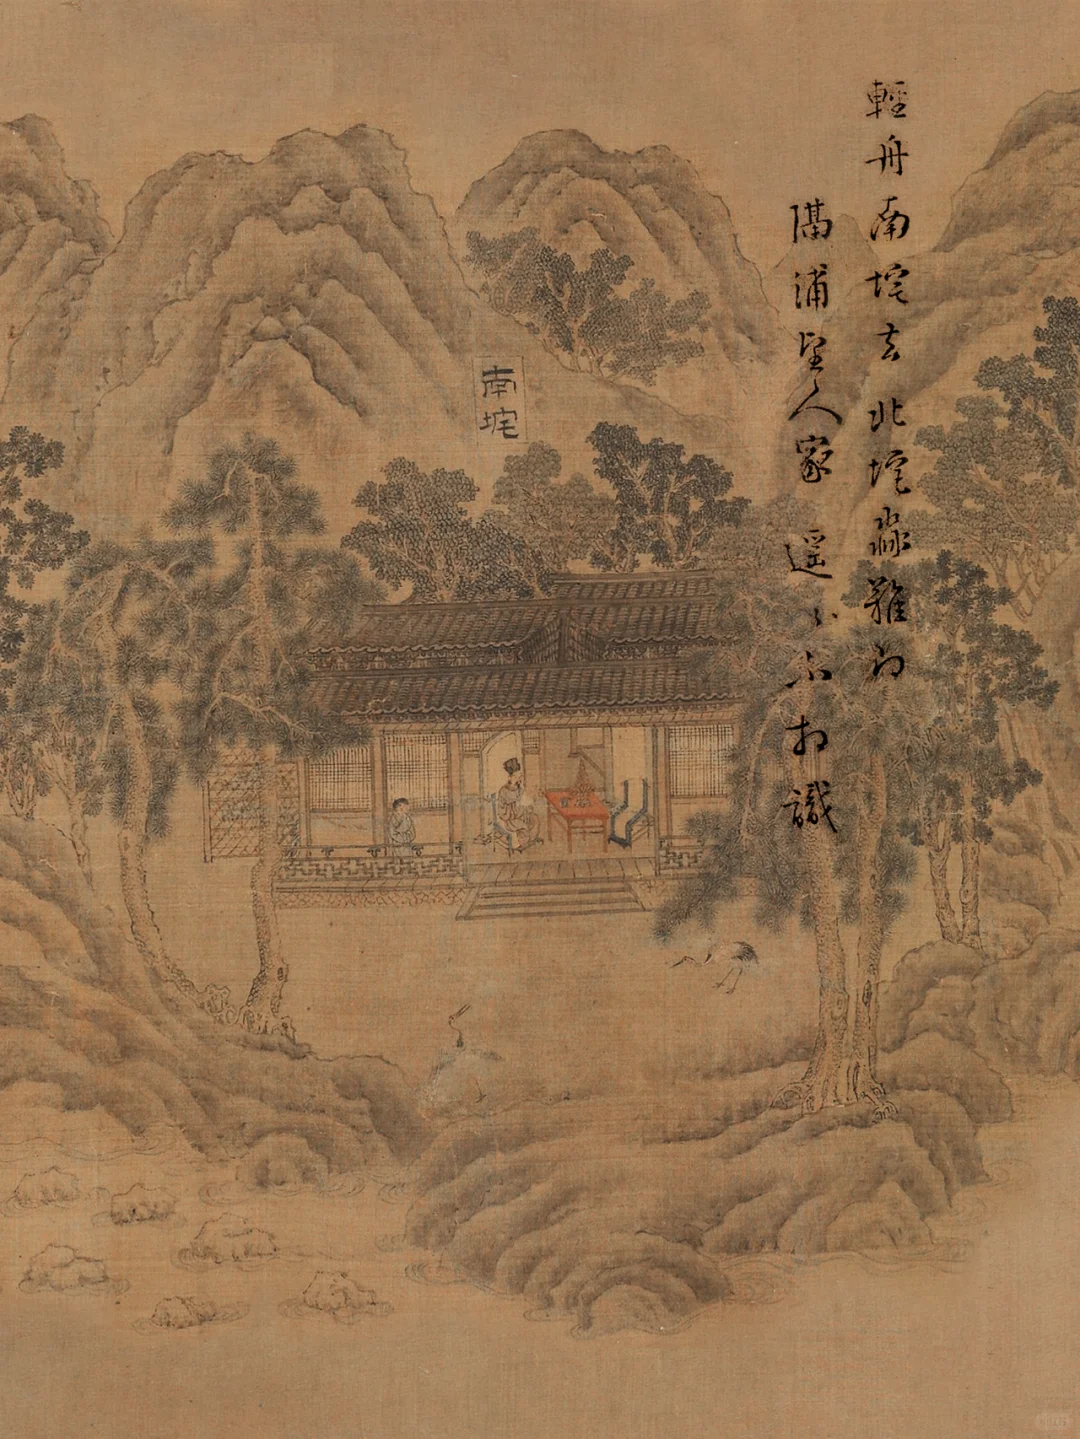 輕舟南垞去 北垞淼難即
隔浦望人家 遥〻不相識
南垞